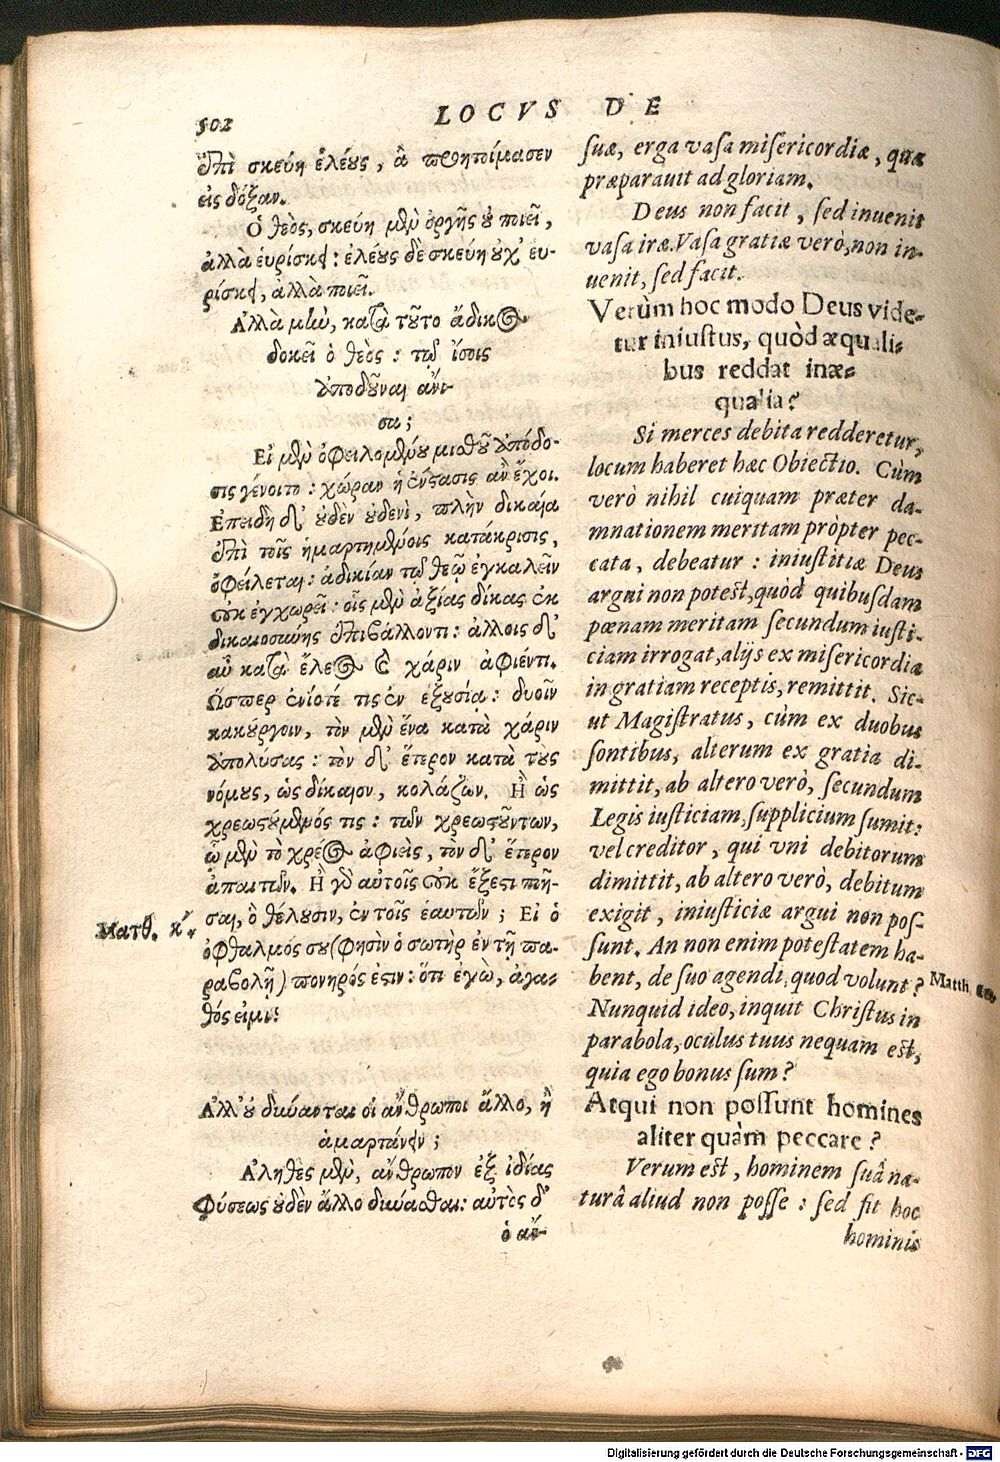 502
LOCVS DE
ἐπὶ σκεύη ἐλέους, ἃ προητοίμασεν
εἰς δόξαν.
Ὁ θεὸς, σκεύη μὲν ὀργῆς οὐ ποιεῖ,
ἀλλὰ εὑρίσκει: ἐλέους δὲ σκεύη οὐχ' εὑ-
ρίσκει, ἀλλὰ ποιεῖ.
Ἀλλὰ μὴν, κατὰ τοῦτο ἄδικος
δοκεῖ ὁ θεὸς: τῷ ἴσοις
ἀποδοῦναι ἄνι-
σα;
Εἰ μὲν ὀφειλομένου μισθοῦ ἀπόδο-
σις γένοιτο: χώραν ἡ ἔνστασις ἂν ἔχοι.
Ἐπειδὴ δ' οὐδὲν οὐδενὶ, πλὴν δικαία
ἐπὶ τοῖς ἡμαρτημένοις κατάκρισις,
ὀφείλεται: ἀδικίαν τῷ θεῷ ἐγκαλεῖν
οὐκ ἐγχωρεῖ: οἷς μὲν ἀξίας δίκας ἐκ
δικαιοσύνης ἐπιβάλλοντι: ἄλλοις δ'
αὖ κατὰ ἔλεος καὶ χάριν ἀφιέντι.
Ὥσπερ ἐνίοτέ τις ἐν ἐξουσίᾳ: δυοῖν
κακούργοιν, τὸν μὲν ἕνα κατὰ χάριν
ἀπολύσας: τὸν δ' ἕτερον κατὰ τοὺς
νόμους, ὡς δίκαιον, κολάζων. Ἢ ὡς
χρεωστούμενός τις: τῶν χρεωστούντων,
ᾧ μὲν τὸ χρέος ἀφιεὶς, τὸν δ' ἕτερον
ἀπαιτῶν. Ἢ γὰρ αὐτοῖς οὐκ ἔξεστι ποιῆ-
σαι, ὃ θέλουσιν, ἐν τοῖς ἑαυτῶν; Εἰ ὁ
ὀφθαλμός σου (φησὶν ὁ σωτὴρ ἐν τῇ πα-
ραβολῇ) πονηρός ἐστιν: ὅτι ἐγὼ, ἀγα-
θός εἰμι;
Ματθ. κ'
Ἀλλ' οὐ δύνανται οἱ ἄνθρωποι ἄλλο, ἢ
ἁμαρτάνειν;
Ἀληθὲς μὲν, ἄνθρωπον ἐξ ἰδίας
φύσεως οὐδὲν ἄλλο δύνασθαι: αὐτὸς δ'
ὁ ἄν-
suæ, erga vasa misericordiæ, quæ
præparauit ad gloriam.
Deus non facit, sed inuenit
vasa iræ. Vasa gratiæ verò, non in-
uenit, sed facit.
Verùm hoc modo Deus vide-
tur iniustus, quòd æquali-
bus reddat inæ-
qualia?
Si merces debita redderetur,
locum haberet hæc Obiectio. Cùm
verò nihil cuiquam præter da-
mnationem meritam pròpter pec-
cata, debeatur: iniustitiæ Deus
argui non potest, quòd quibusdam
pœnam meritam secundum iusti-
ciam irrogat, alijs ex misericordia
in gratiam receptis, remittit. Sic-
ut Magistratus, cùm ex duobus
sontibus, alterum ex gratia di-
mittit, ab altero verò, secundum
Legis iusticiam, supplicium sumit:
vel creditor, qui vni debitorum
dimittit, ab altero verò, debitum
exigit, iniusticiæ argui non pos-
sunt. An non enim potestatem ha-
bent, de suo agendi, quod volunt?
Nunquid ideo, inquit Christus in
parabola, oculus tuus nequam est,
quia ego bonus sum?
Matth.
Atqui non possunt homines
aliter quàm peccare?
Verum est, hominem suâ na-
turâ aliud non posse: sed fit hoc
hominis
Digitalisierung gefördert durch die Deutsche Forschungsgemeinschaft - DFG